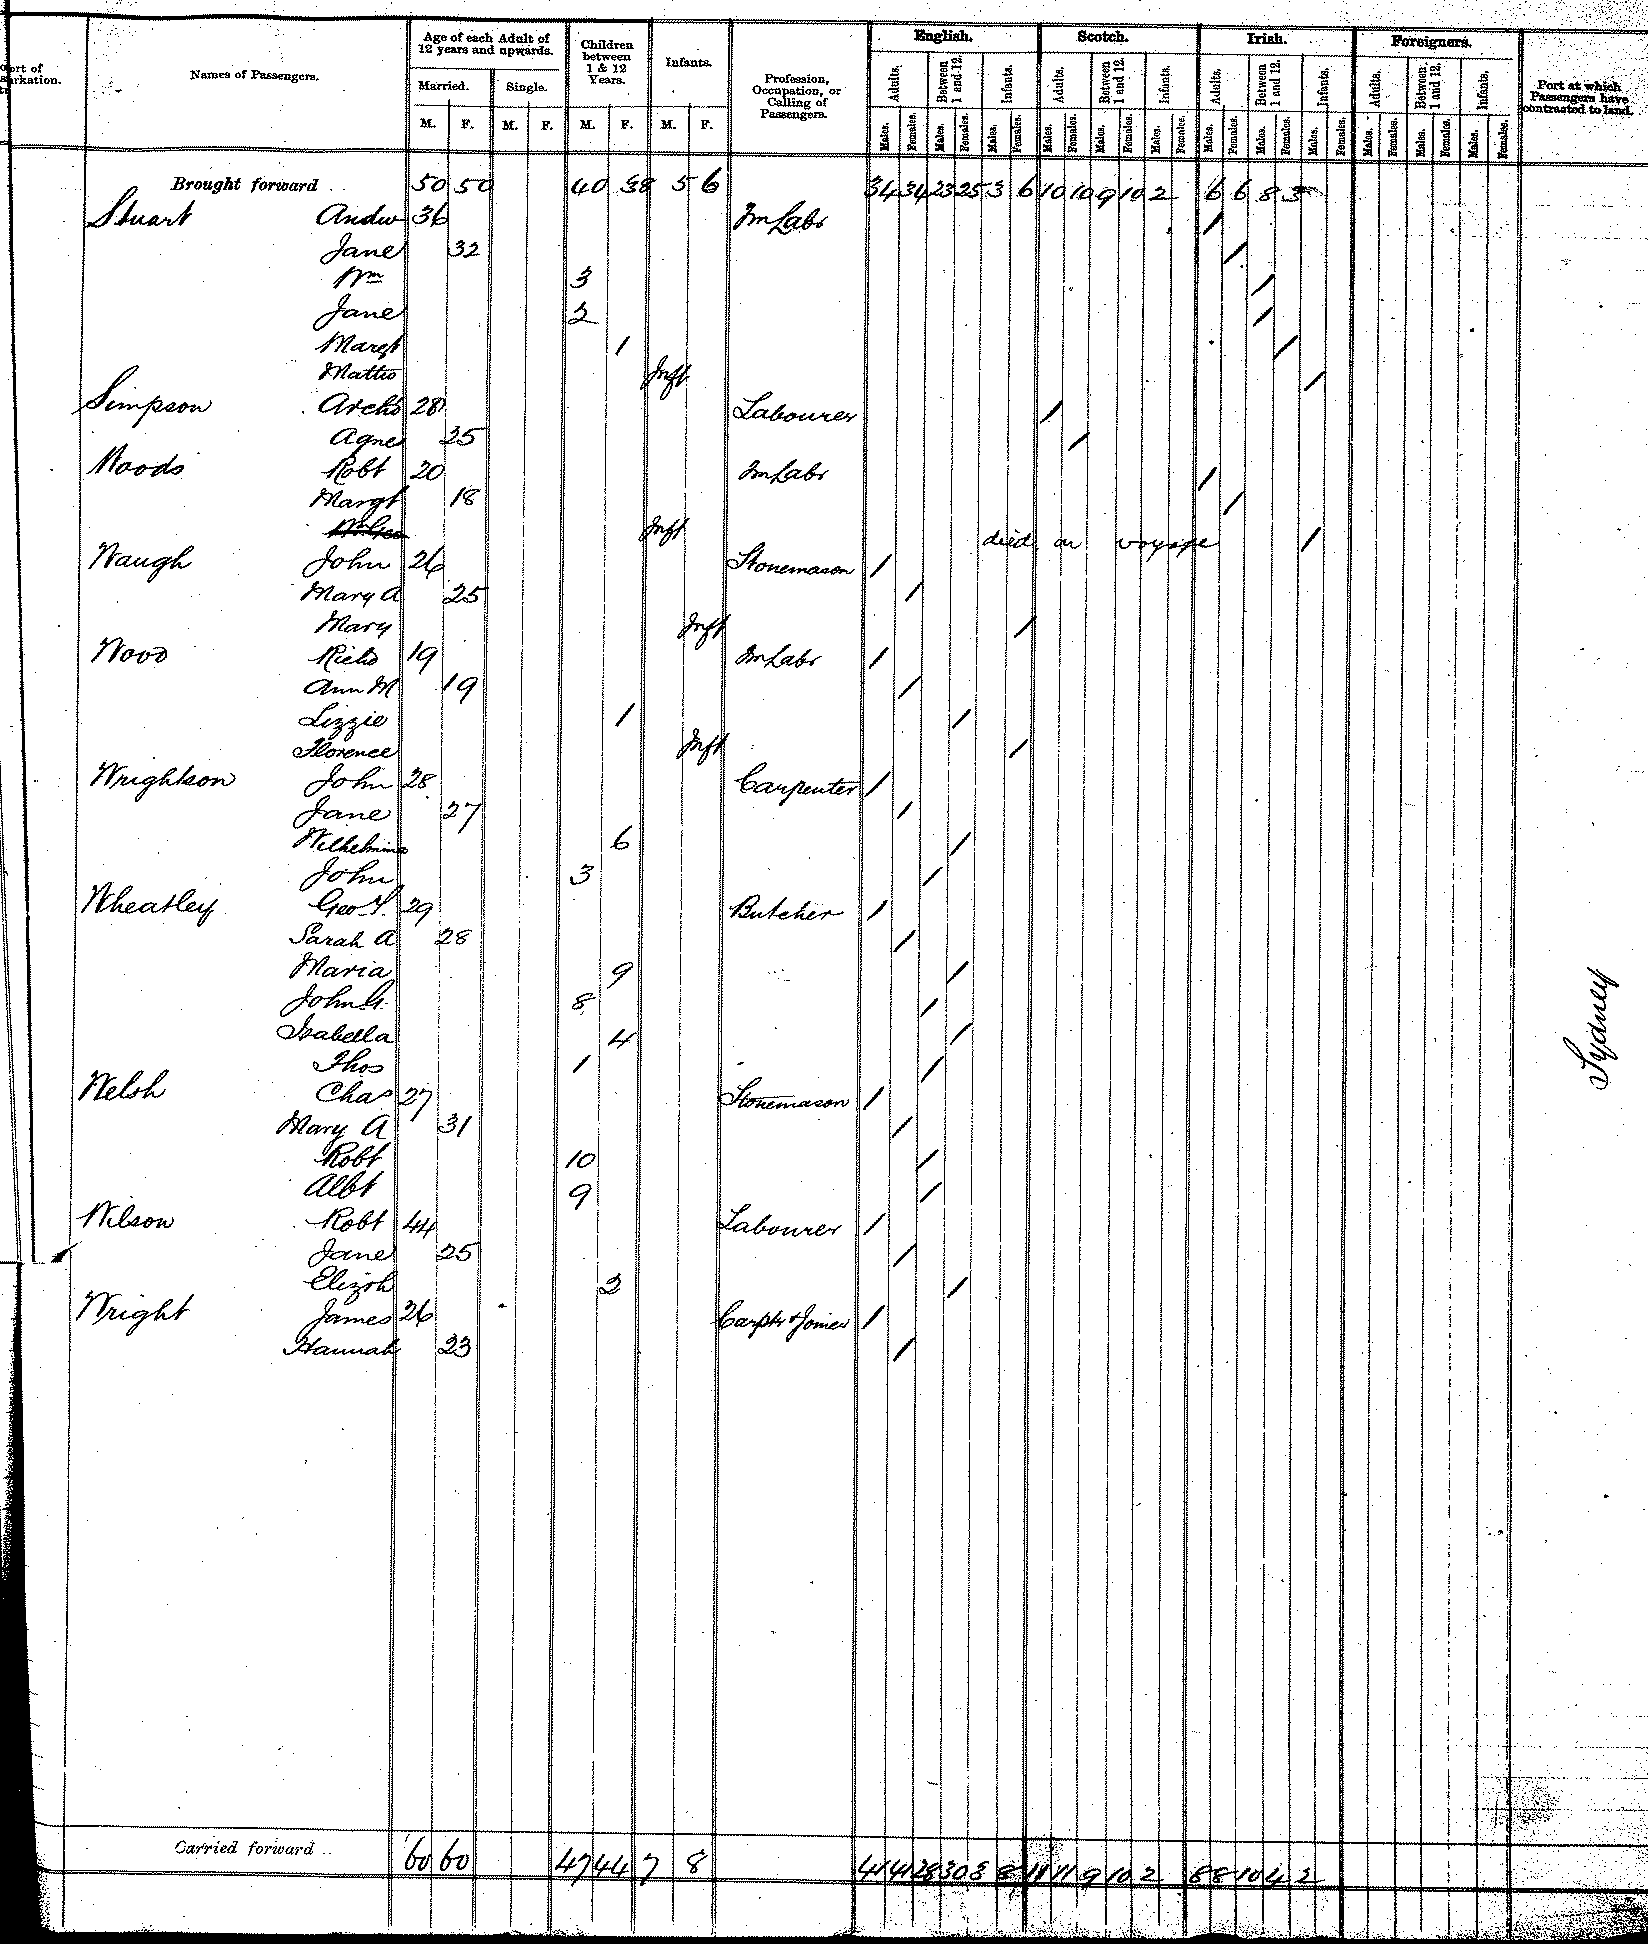 Port of
Embarkation.
Names of Passengers.
Age of each Adult of 12 years and upwards.
Married. Single.
M. F. M. F.
Children between 1 & 12 Years.
M. F.
Infants.
M. F.
Profession, Occupation, or Calling of Passengers.
English. Scotch. Irish. Foreigners.
Adults. Between 1 and 12. Infants. Adults. Between 1 and 12. Infants. Adults. Between 1 and 12. Infants. Adults. Between 1 and 12. Infants.
Males. Females. Males. Females. Males. Females. Males. Females. Males. Females. Males. Females. Males. Females. Males. Females. Males. Females. Males. Females. Males. Females. Males. Females.
Port at which Passengers have contracted to land.
Brought forward 50 50 40 38 5 6 34 34 23 25 3 6 10 10 9 10 2 6 6 8 3
Stuart Andw 36 Fm Labr /
Jane 32 /
Wm 3 /
Jane 2 /
Margt 1 /
Mattw Inft /
Simpson Archd 28 Labourer /
Agnes 25 /
Woods Robt 20 Fm Labr /
Margt 18 /
Inft died on voyage /
Waugh John 26 Stonemason /
Mary A 25 /
Mary Inft /
Wood Richd 19 Fm Labr /
Ann M 19 /
Lizzie 1 /
Florence Inft /
Wrightson John 28 Carpenter /
Jane 27 /
Wilhelmina 6 /
John 3 /
Wheatley Geo Y. 29 Butcher /
Sarah A 28 /
Maria 9 /
John G. 8 /
Isabella 4 /
Thos 1 /
Welsh Chas 27 Stonemason /
Mary A 31 /
Robt 10 /
Albt 9 /
Wilson Robt 44 Labourer /
Jane 25 /
Elizth 2 /
Wright James 26 Carptr & Joiner /
Hannah 23 /
Sydney
Carried forward 60 60 47 44 7 8 41 41 28 30 3 8 11 11 9 10 2 8 8 10 4 2